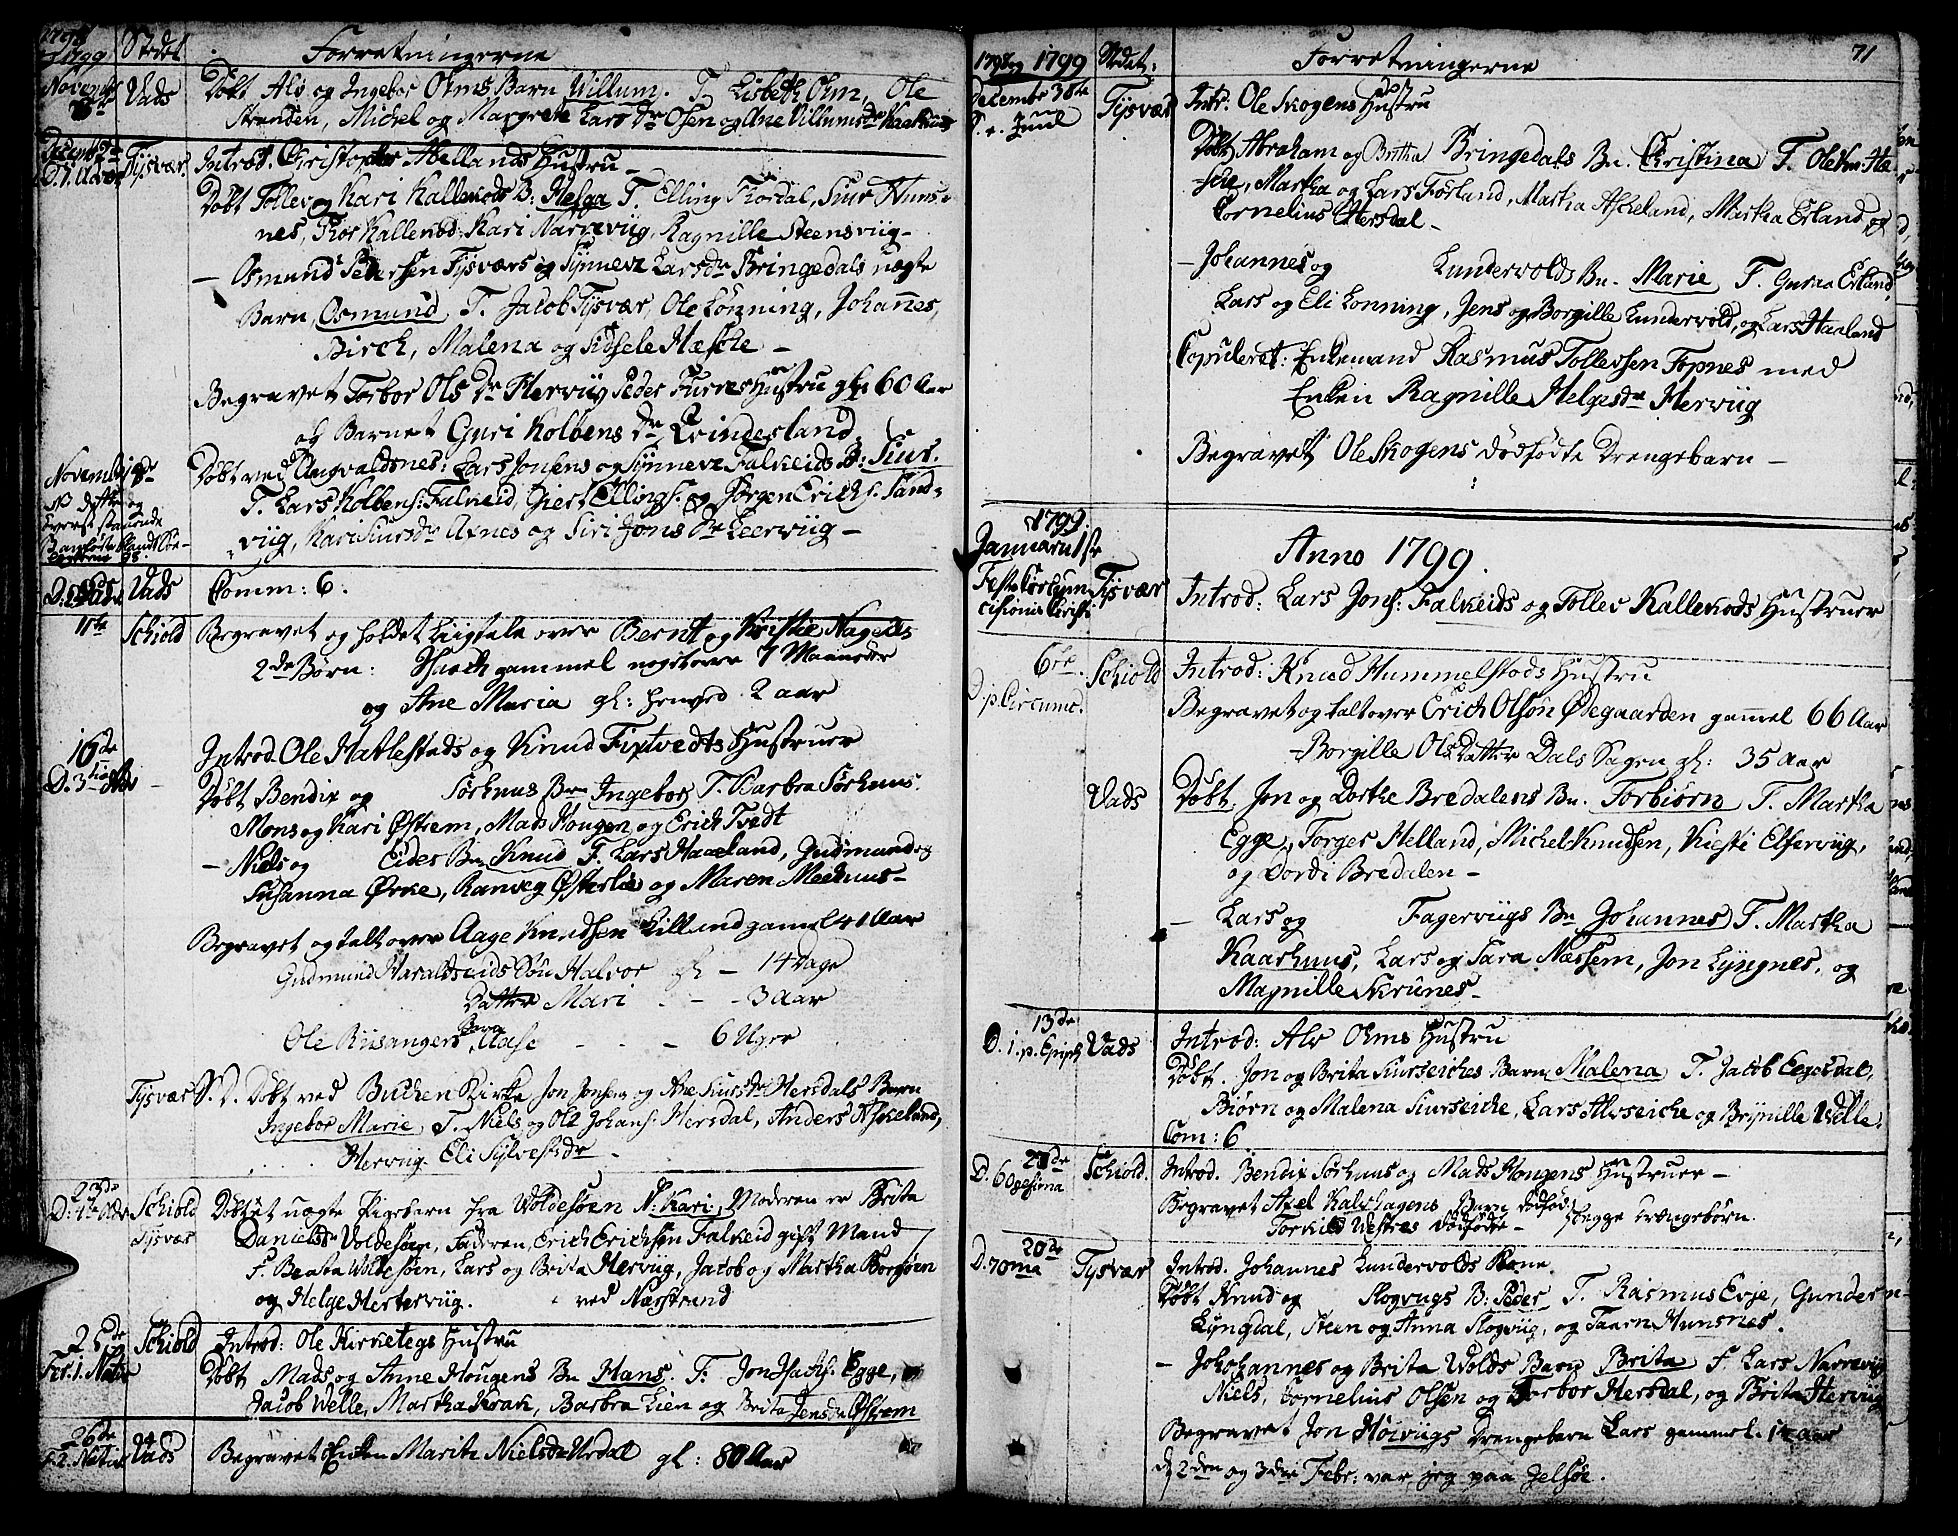 1798
og 1799 Stedet Forretningerne
Novembr Vads Døbt Alv og Ingebor Olms Barn Villum. T. Lisbeth Olm, Ole
Stranden, Michel og Margrete Lars Dr Olsen og Ane Villumsdr Kaarhuus
Decembr 2de Tysvær Introd. Christopher Aellands Hustru –
Døbt Tollev og Kari Kallekods B: Helga T. Elling Fordal, Siur Huns-
nes, Thor Kallekod: Kari Narreviig, Ragnille Steensviig –
– Osmund Pedersen Tysværs og Synneve Larsdr Bringedals uægte
Barn Osmund T. Jacob Tysvær, Ole Lønning, Johannes
Birch, Malena og Sidsele Hæsche –
Begravet Torbor Ols Dr Herviig Peder Furres Hustru gl: 60 Aar
og Barnet Guri Kolbens Dr Qvindesland
November Døbt ved Augvaldsnes: Lars Jonsens og Synneve Falkeids B: Siur.
T. Lars Kolbens: Falkeid, Gier Ellings. og Jørgen Erichs. Sand-
viig, Kari Siursdr Axnes og Siri Jons Dr Leerviig –
Vads Comm: 6.
11te Schiold Begravet og holdet Liigtale over Bernt og Kristie Nagels
2de Børn: Isaach gammel nogle over 7 Maaneder
og Ane Maria gl: henved 2 aar
16de Introd. Ole Hatlestads og Knud Fixtvedts Hustruer
D. 3 Døbt Bendix og Sørhuus Bn Ingebor T. Barbra Sørhuus.
Mons og Kari Østrem, Mads Hougen og Erich Tvedt
– Niels og Eides Bn Knud T. Lars Haaeland, Gudmund og
Susanna Ørke, Ranveg Østerlie og Maren Meehuus –
Begravet og talt over Aage Knudsen Lillund gamel 41 Aar
Gudmund Haraldseids Søn Halvor gl – 14 Dage
Datter Mari - - 3 aar
Ole Riisangers Barn Aase - - - 6 Uger
Tysvær S. D. Døbt ved Buchen Kirke Jon Jonsen og Ane Siursdr Hersdals Barn
Ingebor Marie, T. Niels og Ole Johans: Hersdal, Anders Askeland,
Herviig Eli Sylvesdr –
23de Schiold Døbt et uægte Pigebarn fra Voldesøen N: Kari, Moderen er Brita
Tysvær Danielsdr Voldesøen, Faderen Erich Erichsen Falkeid gift Mand
T. Beata Voldesøen, Lars og Brita Herviig, Jacob og Martha Borgøen
og Helge Herterviig. ved Nærstrand
25de Schiold Introd: Ole Kirketegs Hustru
Fer: 1. Nativ Døbt Mads og Anne Hougens Bn Hans. T: Jon Isachs. Egge,
Jacob Welle, Martha Krak, Barbra Lien og Brita Jensdr Østrem
26de Vads Begravet Enken Marite Nielsdr Ursdal gl: 80 Aar
F. 2. Nativ
1798 og 1799 Stedet: Forretningerne 71
Decembr 30te Tysvær Intr: Ole Skogens Hustru
S. e. Juul Døbt Abraham og Britha Bringedals Bn. Christina T. Ole Hæ-
sche, Martha og Lars Førland, Martha Askeland, Martha Erland og
Cornelius Hersdal –
– Johannes og Lundervolds Bn. Marie T. Guroa Erland,
Lars og Eli Lonning, Jens og Borgille Lundervold, og Lars Haaland
Copuleret: Enkemand Rasmus Tollevsen Fopnes med
Enken Ragnille Helgesdr Herviig
Begravet Ole Skogens dødfødte Drengebarn –
1799
Januarii 1ste Anno 1799.
Festo Circumcisionis Christi Tysvær Introd: Lars Jons: Falkeids og Tollev Kallekods Hustruer
6te Schiold Introd: Knud Hummelstads Hustru
D. p. Circumc. Begravet og talt over Erich Olsøn Ødegaarden gamel 66 Aar
– Borgille Ols Datter Dals Sagen gl: 35 aar
Vads Døbt Jon og Dorthe Bredalens Bn. Torbiørn T. Martha
Egge, Torger Helland, Michel Knudsen, Kiesti Elferviig,
og Dordi Bredalen –
– Lars og Fagerviigs Bn Johannes T. Martha
Kaarhuus, Lars og Sara Næssem, Jon Lyngnes, og
Magnille Skrunes –
13de Introd: Alv Olms Hustru
D. 1. p. Epiph Vads Døbt. Jon og Brita Kurseiches Barn Malena T. Jacob Eegesdal,
Biørn og Malena Kurseiche, Lars Alvseiche og Brynille Velle.
Com: 6
Schiold. Introd. Bendix Sørhuus og Mads Hougens Hustruer –
D. 60gesima Begravet Axel Kalshagens Barn dødfød.
Torkild Vestres dødfødte – begge drængebørn.
20de Tysvær Introd. Johannes Lundervolds Kone.
D. 70ma Døbt Knud og Slogvigs B: Peder T. Rasmus Evje, Gunder
Lyngdal, Steen og Anna Slogviig, og Taarn Hunsnes.
– Johohannes og Brita Volds Barn Brita T. Lars Narreviig
Niels, Cornelius Olsen og Torbor Hersdal, og Brita Herviig
Begravet Jon Høivigs Drengebarn Lars gammel 1½ aar
d. 2den og 3die Febr: var jeg paa Jelsøe.